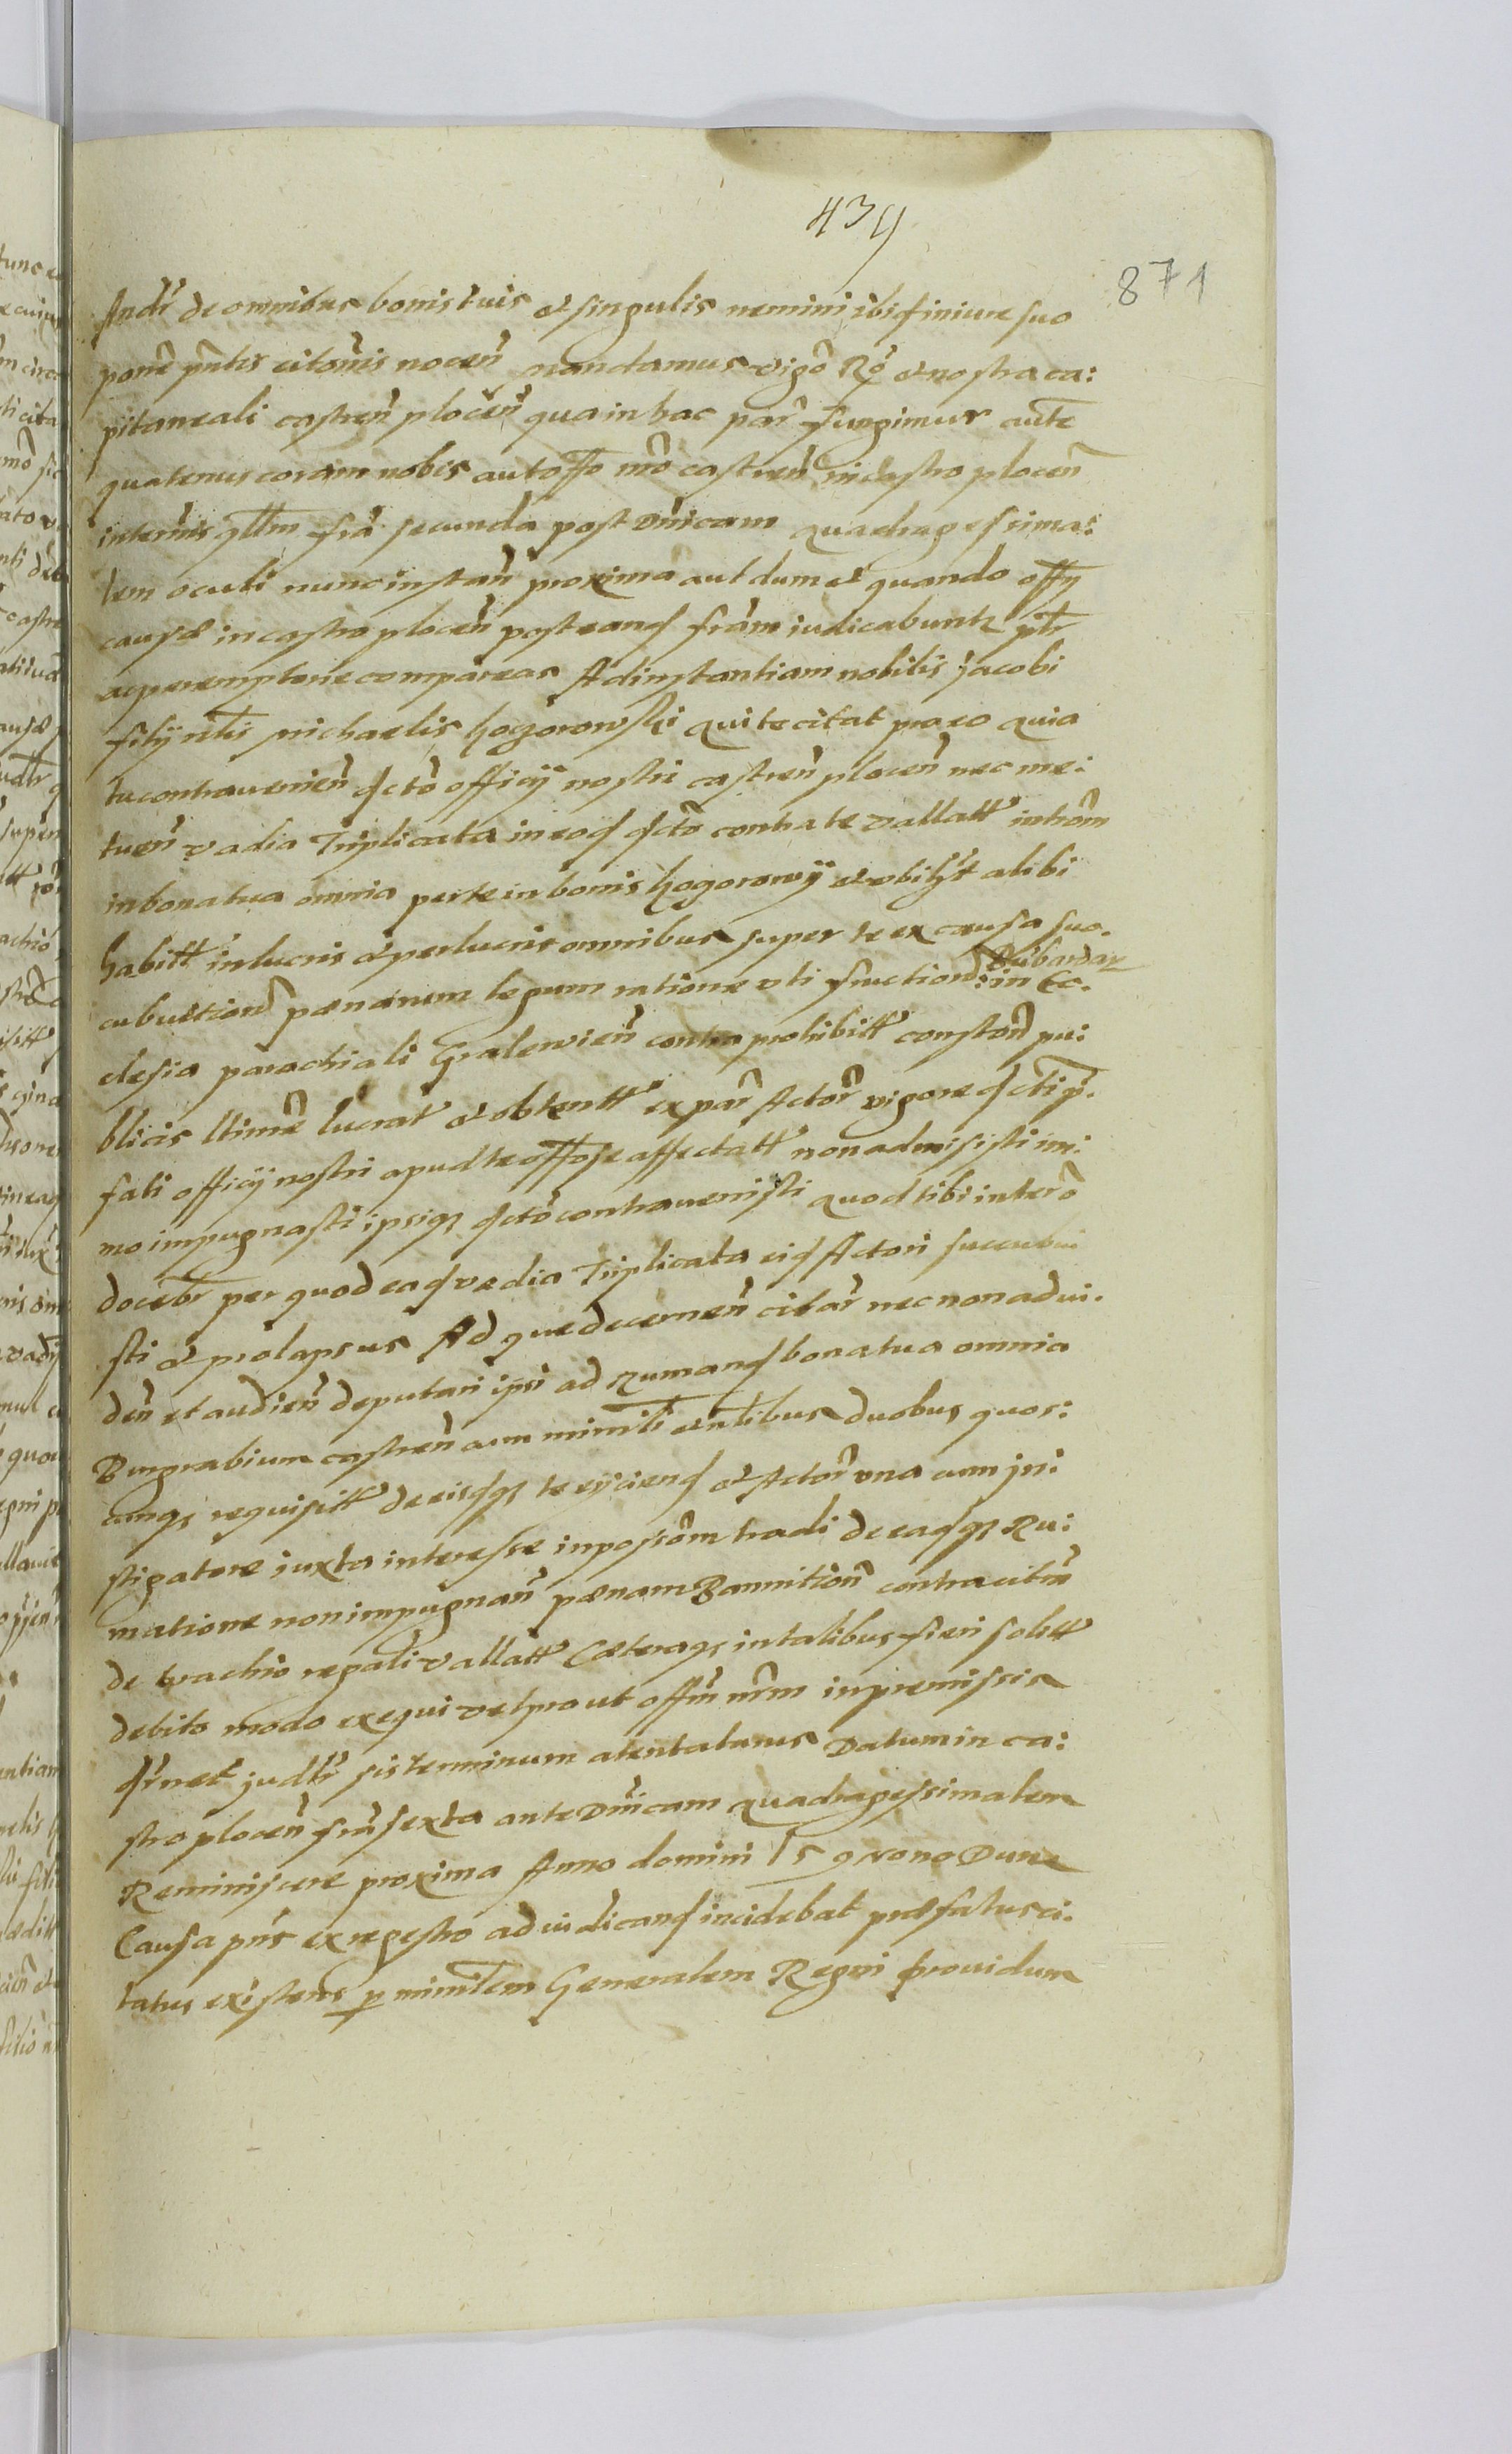 439
871
Andr̃ de omnibus bonis tuis et singulis nemini ibi finiure suo
pont̃ pñtis citonis nocen̄ mandamus vigō Rō et nostra ca:
pitaneali castren̄ plocen̄ qua in hac par̃ fungimur aut̃e
quatenus coram nobis aut offo nrō castren̄ in castro plocen̄
in termīs q̃llm fr̃a secunda post Dñicam quadragessima:
lem oculi nunc instan̄ proxima aut dum et quando offy
causæ in castro plocen̄ posteand fr̃am iudicabuntr pl̃r
ac peremptorie compareas Ad instantiam nobilis Jacobi
filij nl̃is Michaelis hogorowski qui te citat pro eo quia
tu contravenien̄ dcto officij nostri castren̄ plocen̄ nec me:
tuen̄ vadia Triplicata in eod dcto contra te vallatt introm̄
in bona tua omnia per te in bonis hogorowy et ubilz̃t alibi
habitt in lucris et perlucris omnibus super te ex causa suo.
cubuition̄ pœnarum legum ratione uti fruction̄: Bibardar in Ec.
clesia parachiali Gralewien̄ contra prohibitt conston̄ pu:
blicis ltime lucrat et obtentt ex par̃ Actor̃ vigore dcti p̃.
fati officij nostri apud te offose affectatt non admisisti im:
mo impugnasti ipsiq̃ dcto contravenisti quod tibi interō
docebr̃ per quod ead vadia Triplicata eid Actori succubui
sti et prolapsus Ad que decernen̄ citar̃ nec non ad vi.
den̄ et audien̄ deputari ipsi ad Rumand bona tua omnia
Burgrabium castren̄ cum ministl̃i et nl̃ibus duobus quor:
umq̃ requisitt de eisdq̃ te eijciend et Actor̃ una cum jn:
stigatore iuxta interesse in possom̄ tradi de eadq̃ Ru:
matione non impugnan̄ pœnam Bannition̄ contra citm̄
de brachio regali vallatt Cæteraq̃ in talibus fieri solitt
debito modo exequi vel prout offm̄ nr̃m in premissis
dr̃net judtr̃ sis terminum atentaturus Datum in ca:
stro plocen̄ fr̃a sexta ante Dñicam quadragessimalem
Reminiscere proxima Anno domini 15 9 Nono Dum
Causa pñs ex regestro ad iudicand incidebat præfatus ci.
tatus existens p ministl̃em Generalem Regni providum